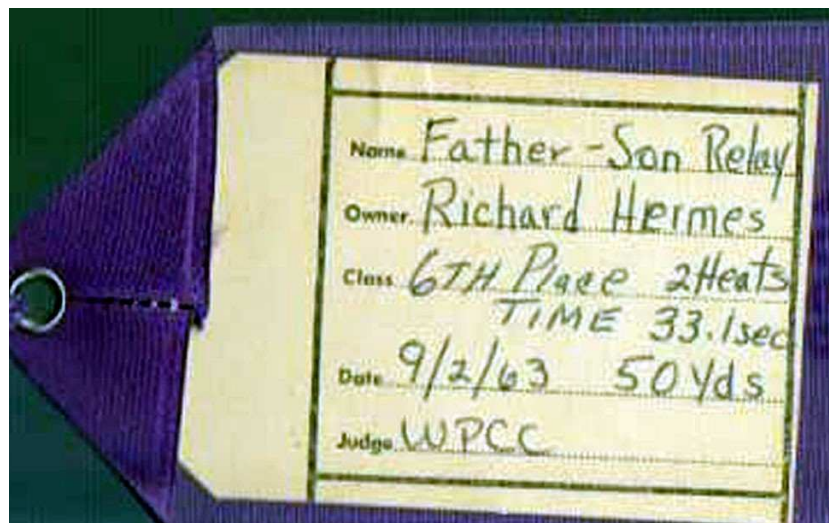 Name Father-Son Relay
Owner Richard Hermes
Class 6TH Place 2 Heats
TIME 33.1sec
Date 9/2/63 50 Yds
Judge WPCC